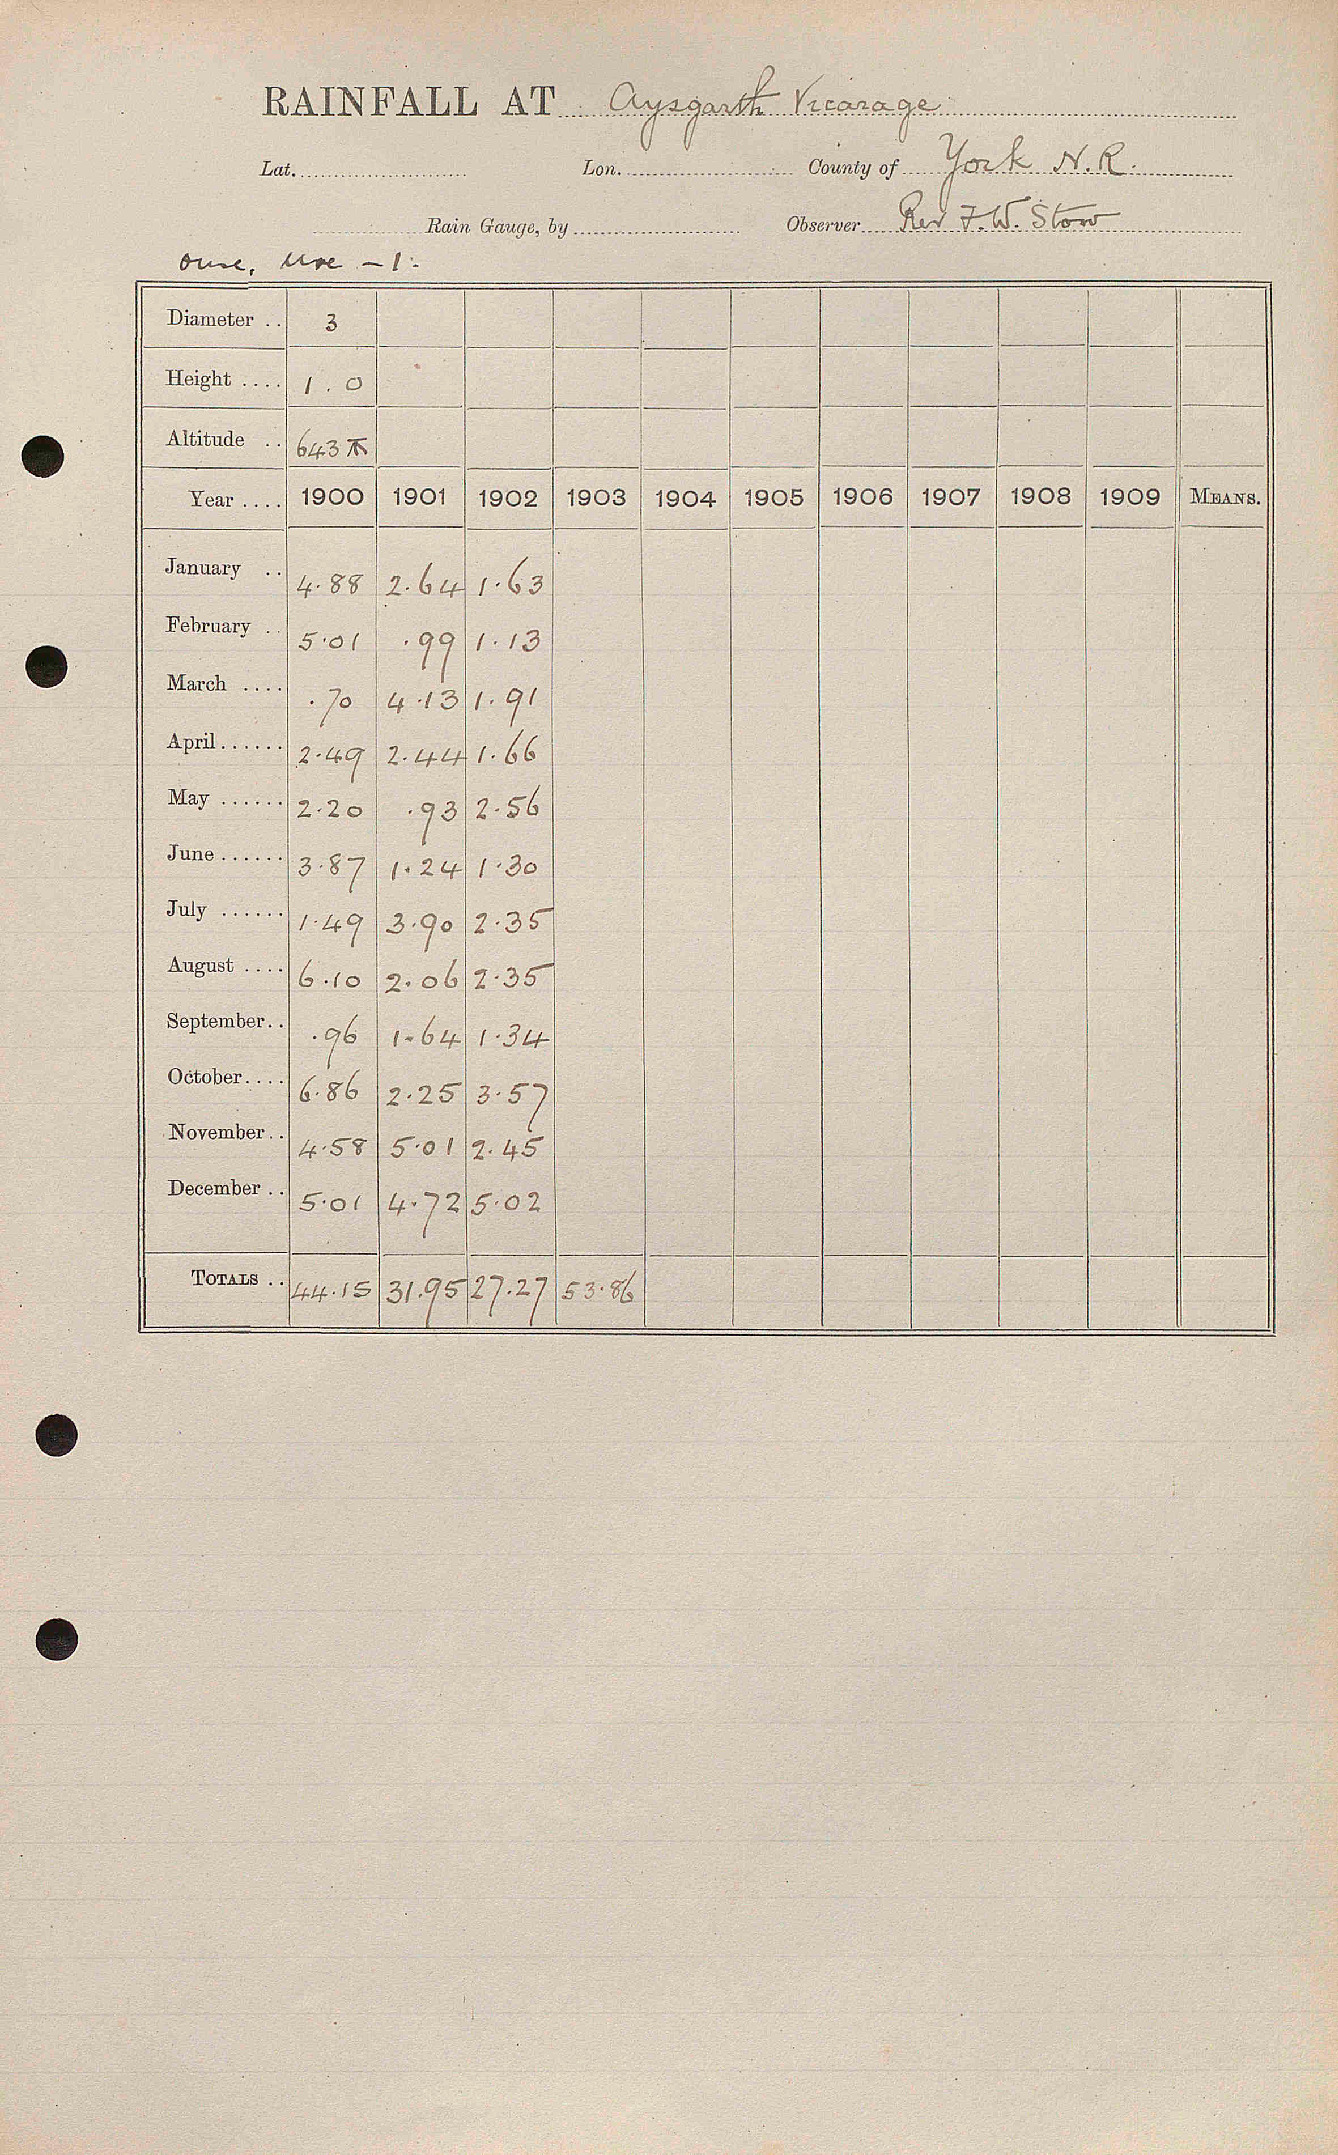 RAINFALL AT Aysgarth Vicarage
Lat. Lon. County of York N.R.
Rain Gauge, by Observer Rev F.W. Stow
Ouse, Ure - 1.
Diameter .. 3
Height .... 1.0
Altitude .. 643
Year .... 1900 1901 1902 1903 1904 1905 1906 1907 1908 1909 MEANS.
January .. 4.88 2.64 1.63
February .. 5.01 .99 1.13
March .... .70 4.13 1.91
April ...... 2.49 2.44 1.66
May ...... 2.20 .93 2.56
June ...... 3.87 1.24 1.30
July ...... 1.49 3.90 2.35
August .... 6.10 2.06 2.35
September.. .96 1.64 1.34
October.... 6.86 2.25 3.57
November.. 4.58 5.01 2.45
December .. 5.01 4.72 5.02
TOTALS .. 44.15 31.95 27.27 53.86